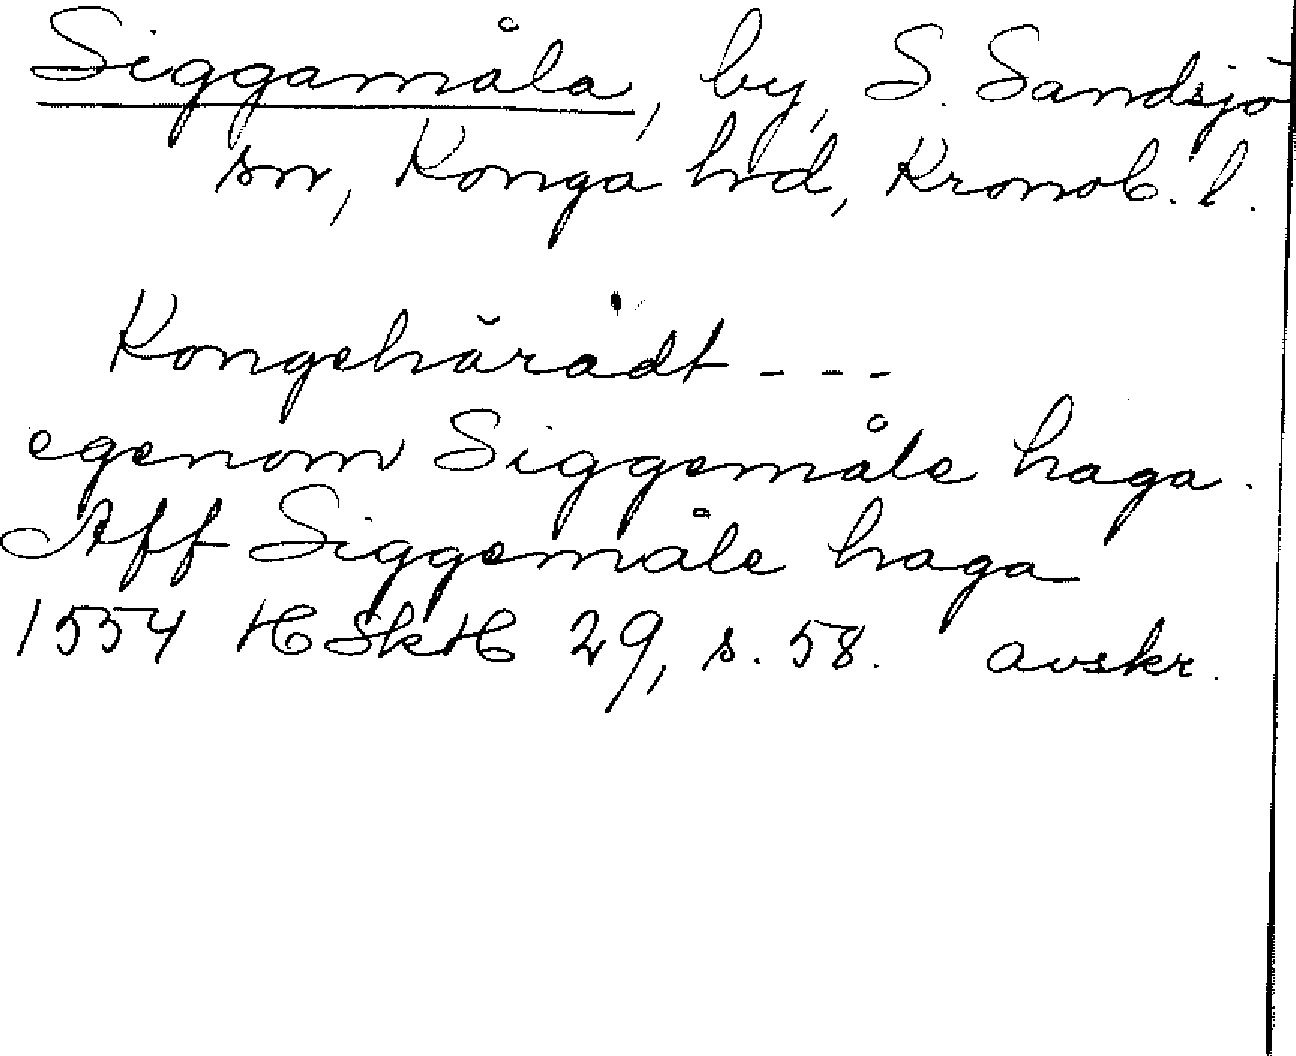 Siggamåla, by, S. Sandsjö
sn, Konga hd, Kronob. l.
Kongehäradt - - -
egenom Siggemåle haga.
Aff Siggemåle haga
1554 HSkH 29, s. 58. avskr.